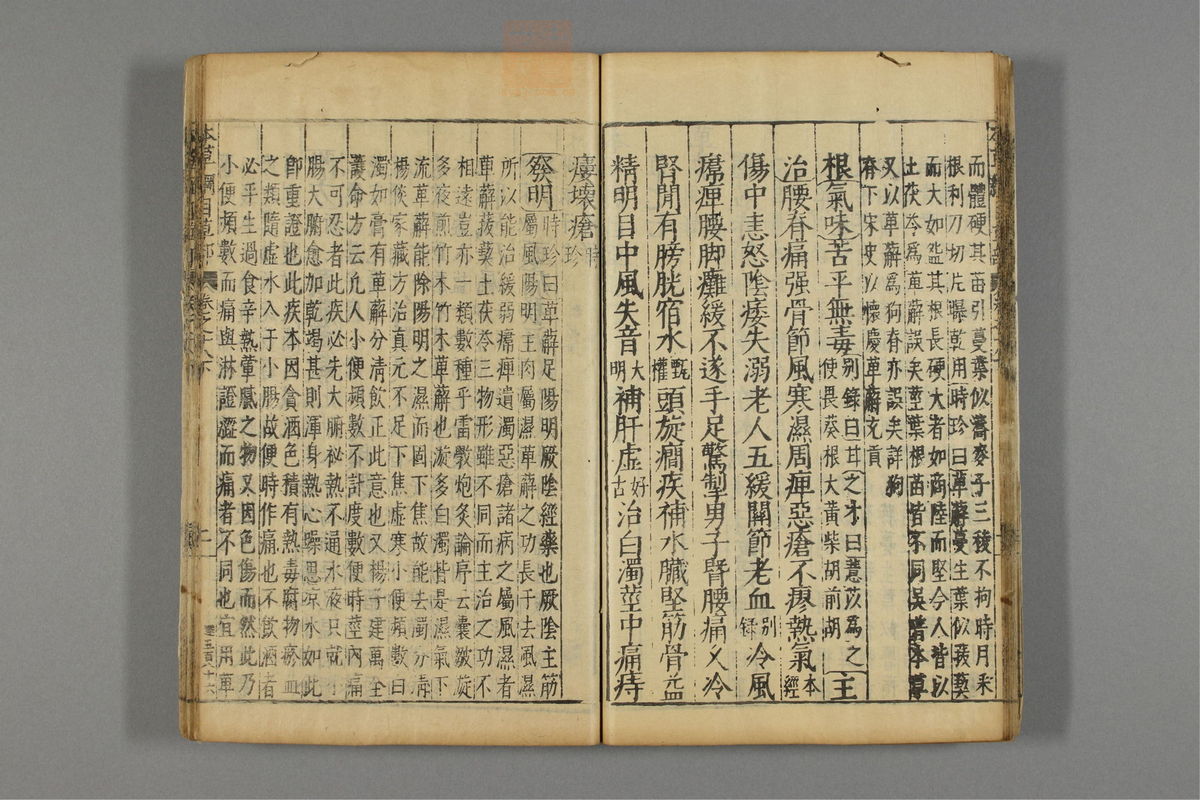 而體硬其苗引蔓葉似蕎麥子三稜不拘時月采
根利刀切片曝乾用時珍曰萆薢蔓生葉似菝葜
而大如盌其根長硬大者如商陸而堅今人皆以
土茯苓爲萆薢誤矣莖葉根苗皆不同吳普本草
又以萆薢爲狗脊亦誤矣詳狗
脊下宋史以懷慶萆薢充貢
根氣味苦平無毒別錄曰甘之才曰薏苡爲之
使畏葵根大黃柴胡前胡主
治腰脊痛强骨節風寒濕周痺惡瘡不瘳熱氣本經
傷中恚怒陰痿失溺老人五緩關節老血別錄冷風
㿏痺腰脚癱緩不遂手足驚掣男子腎腰痛久冷
腎間有膀胱宿水甄權頭旋癇疾補水臟堅筋骨益
精明目中風失音大明補肝虛好古治白濁莖中痛痔
瘻壞瘡時珍
發明時珍曰萆薢足陽明厥陰經藥也厥陰主筋
屬風陽明主肉屬濕萆薢之功長于去風濕
所以能治緩弱㿏痺遺濁惡瘡諸病之屬風濕者
萆薢菝葜土茯苓三物形雖不同而主治之功不
相遠豈亦一類數種乎雷斆炮炙論序云囊皺漩
多夜煎竹木竹木萆薢也漩多白濁皆是濕氣下
流萆薢能除陽明之濕而固下焦故能去濁分淸
楊倓家藏方治真元不足下焦虛寒小便頻數白
濁如膏有萆薢分淸飮正此意也又楊子建萬全
護命方云凡人小便頻數不計度數便時莖內痛
不可忍者此疾必先大腑秘熱不通水液只就小
腸大腑愈加乾竭甚則渾身熱心躁思凉水如此
卽重證也此疾本因貪酒色積有熱毒腐物瘀血
之類隨虛水入于小腸故便時作痛也不飮酒者
必平生過食辛熱葷膩之物又因色傷而然此乃
小便頻數而痛與淋證澀而痛者不同也宜用萆
本草綱目草部 卷之十八下